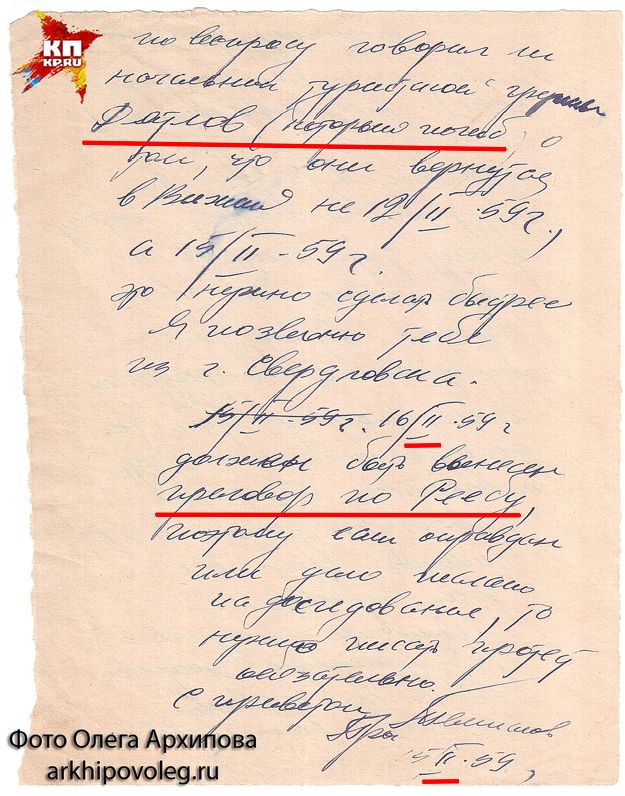 КП
KP.RU
по вопросу говорил ли
начальник туристской группы
Дятлов (который погиб) о
том, что они вернутся
в Вижай не 12/II-59 г.,
а 15/II-59 г.
это нужно сделать быстрее
Я позвоню тебе
из г. Свердловска.
15/II-59 г. 16/II-59 г
должен быть вынесен
приговор по Реебу,
поэтому если оправдан
или дело послано
на доследование, то
нужно писать протест
обязательно.
С приветом
15/II-59,
Фото Олега Архипова
arkhipovoleg.ru